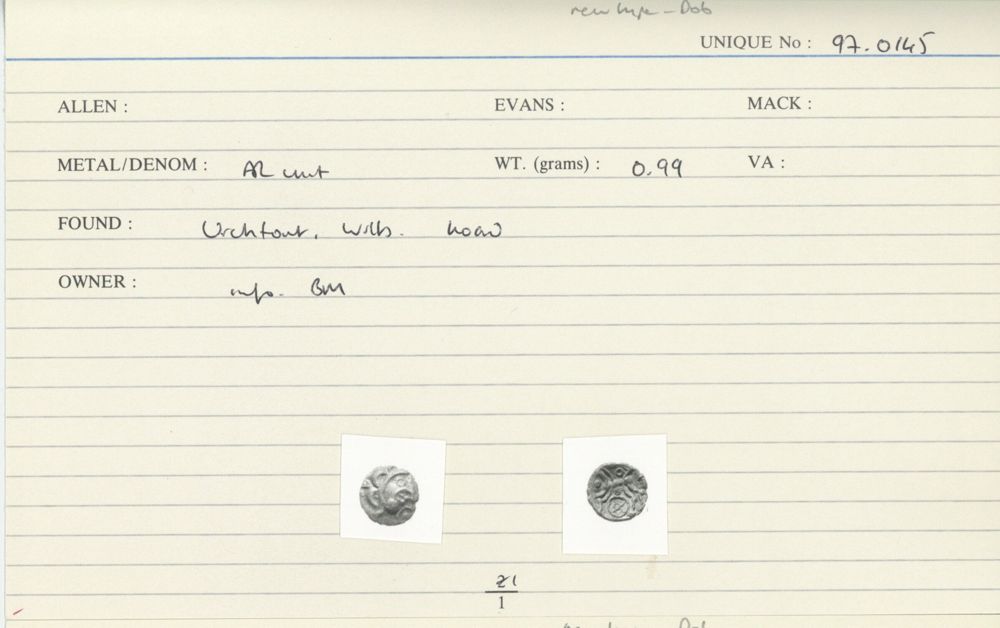 new type - Dob
UNIQUE No : 97.0145
ALLEN : EVANS : MACK :
METAL/DENOM : AR unit WT. (grams) : 0.99 VA :
FOUND : Urchfont, Wilts. hoard
OWNER : info. BM
21
1